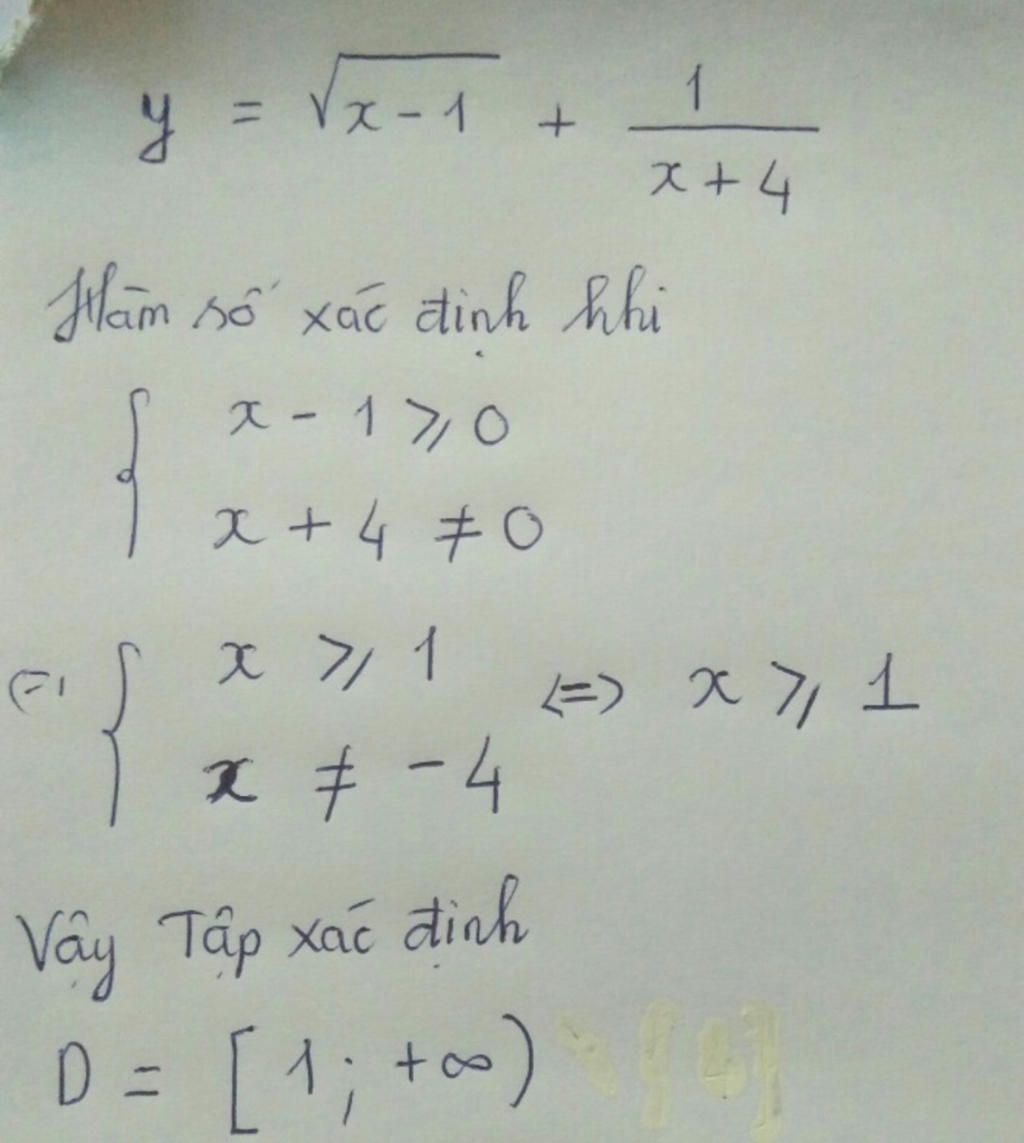 y = √(x - 1) + 1/(x + 4)
Hàm số xác định khi
{ x - 1 ⩾ 0
x + 4 ≠ 0
(=) { x ⩾ 1
x ≠ -4
<=> x ⩾ 1
Vậy Tập xác định
D = [1; +∞)